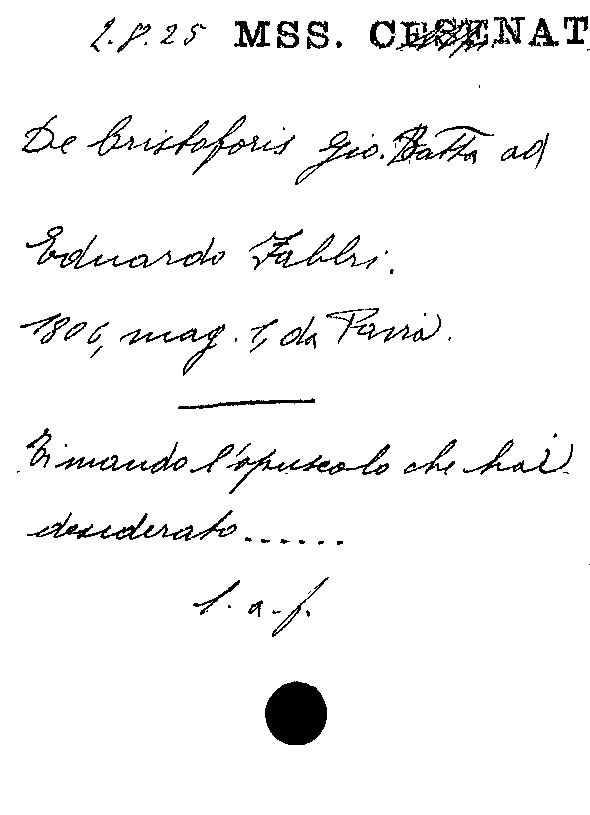 2.8.25 MSS. CESENAT
De Cristoforis Gio. Batta ad
Eduardo Fabbri.
1806, mag. 1, da Pavia.
Ti mando l'opuscolo che hai
desiderato......
l. a. f.